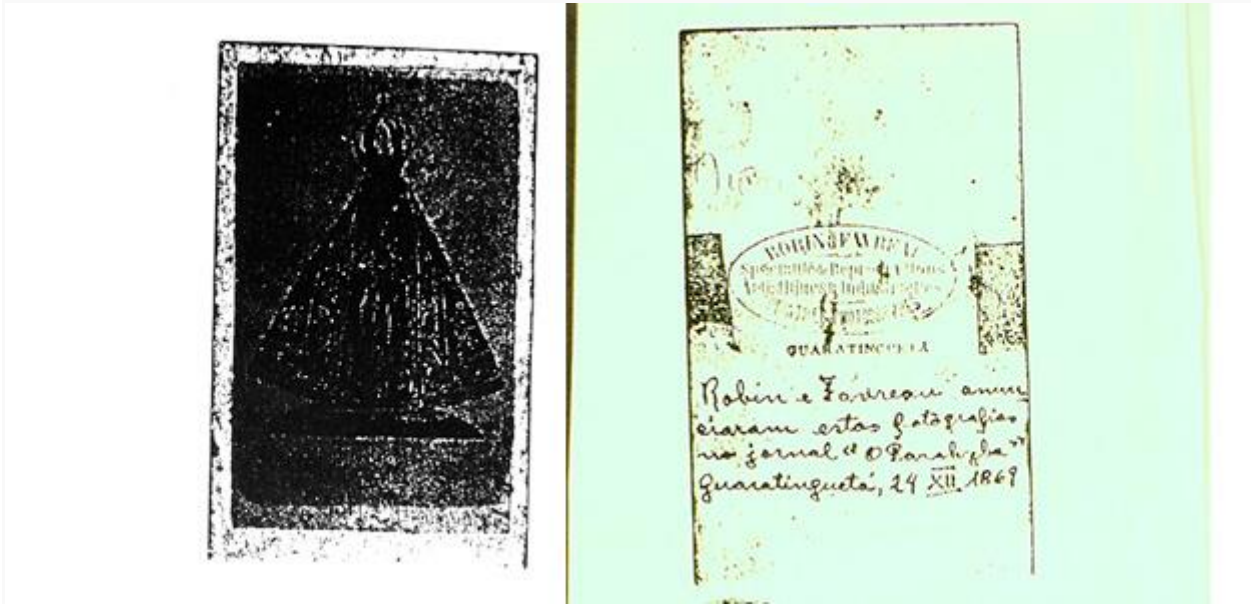 ROBIN & FAVREAU
Spécialité de Reproductions
Artistiques & Industrielles
GUARATINGUETÁ
Robin e Favreau anun
ciaram estas fotografias
no jornal "O Parahyba"
Guaratinguetá, 24 XII 1869